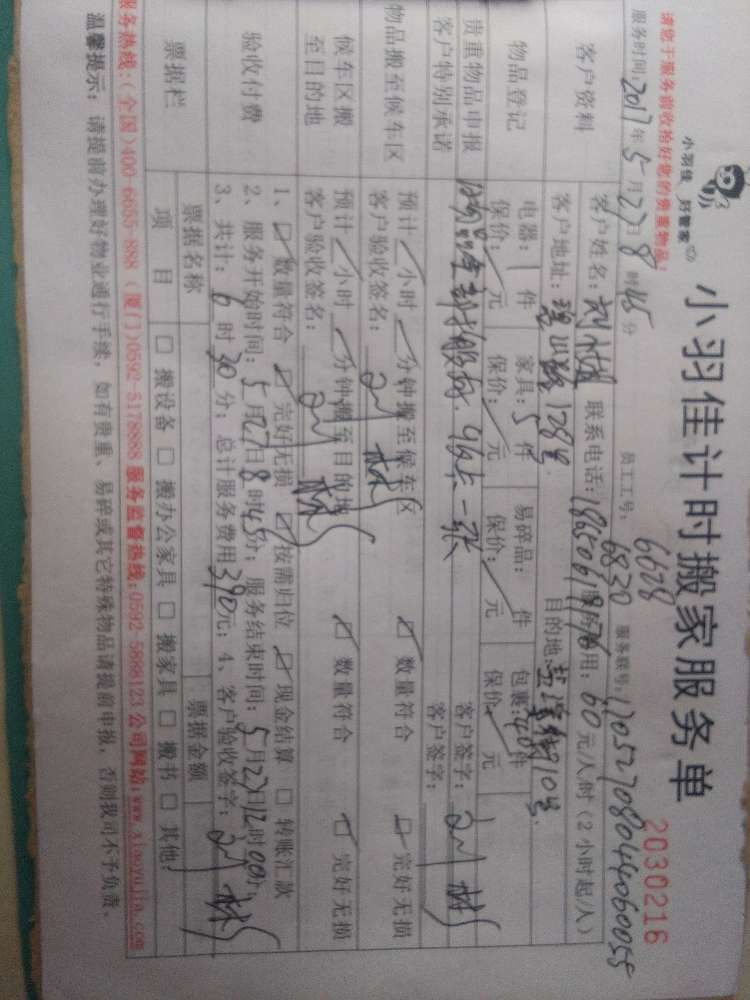 小羽佳 好管家
小羽佳计时搬家服务单
2030216
请您于服务前收拾好您的贵重物品!
员工工号: 6628
6830
服务联号:
服务时间: 2017年5月27日8时45分
客户资料
客户姓名: 联系电话: 服务费用: 60元/人/时(2小时起/人)
客户地址: 128号 目的地: 10号
物品登记
电器: 1件 家具: 5件 易碎品: 件 包裹: 件
保价: 元 保价: 元 保价: 元 保价: 元
贵重物品申报
客户特别承诺
客户签字:
客户签字:
物品搬至候车区
预计 小时 分钟搬至候车区 数量符合 完好无损
客户验收签名:
候车区搬
至目的地
预计 小时 分钟搬至目的地 数量符合 完好无损
客户验收签名:
验收付费
1、 数量符合 完好无损 按需归位 现金结算 转账汇款
2、服务开始时间: 5月27日8时45分; 服务结束时间: 5月27日12时00分;
3、共计: 6时30分; 总计服务费用390元; 4、客户验收签字:
票据栏
票据名称 票据金额
项目 搬设备 搬办公家具 搬家具 搬书 其他:
服务热线:(全国)400-6655-888 (厦门)0592-5178888 服务监督热线:0592-5888123 公司网站:www.xiaoyujia.com
温馨提示: 请提前办理好物业通行手续, 如有贵重、易碎或其它特殊物品请提前申报, 否则我司不予负责。